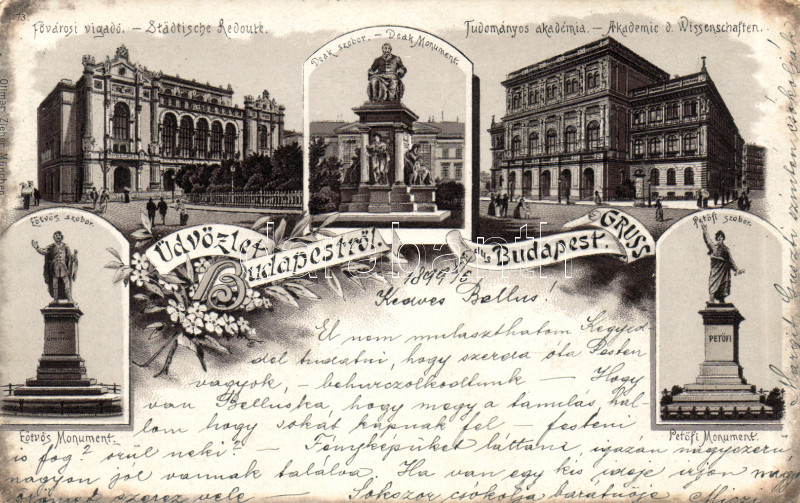 73
Fővárosi vigadó. – Städtische Redoute.
Deák szobor. – Deák Monument.
Tudományos akadémia. – Akademie d. Wissenschaften.
Ottmar Zieher, München
Eötvös szobor.
Petőfi szobor.
Üdvözlet Budapestről.
GRUSS aus Budapest.
1899 5/5
Kedves Bellus!
El nem mulaszthatom Kegyed-
del tudatni, hogy szerda óta Pesten
vagyok, – behurczolkodtunk – Hogy
van Belluska, hogy megy a tanulás hal-
lom hogy sokat kapnak fel – festeni
is fog? örül neki? – Fényképüket láttam, igazán nagyszerű
nagyon jól vannak találva. Ha van egy kis ideje írjon
Sokszor csókolja barátnője
PETŐFI
Eötvös Monument.
Petőfi Monument.